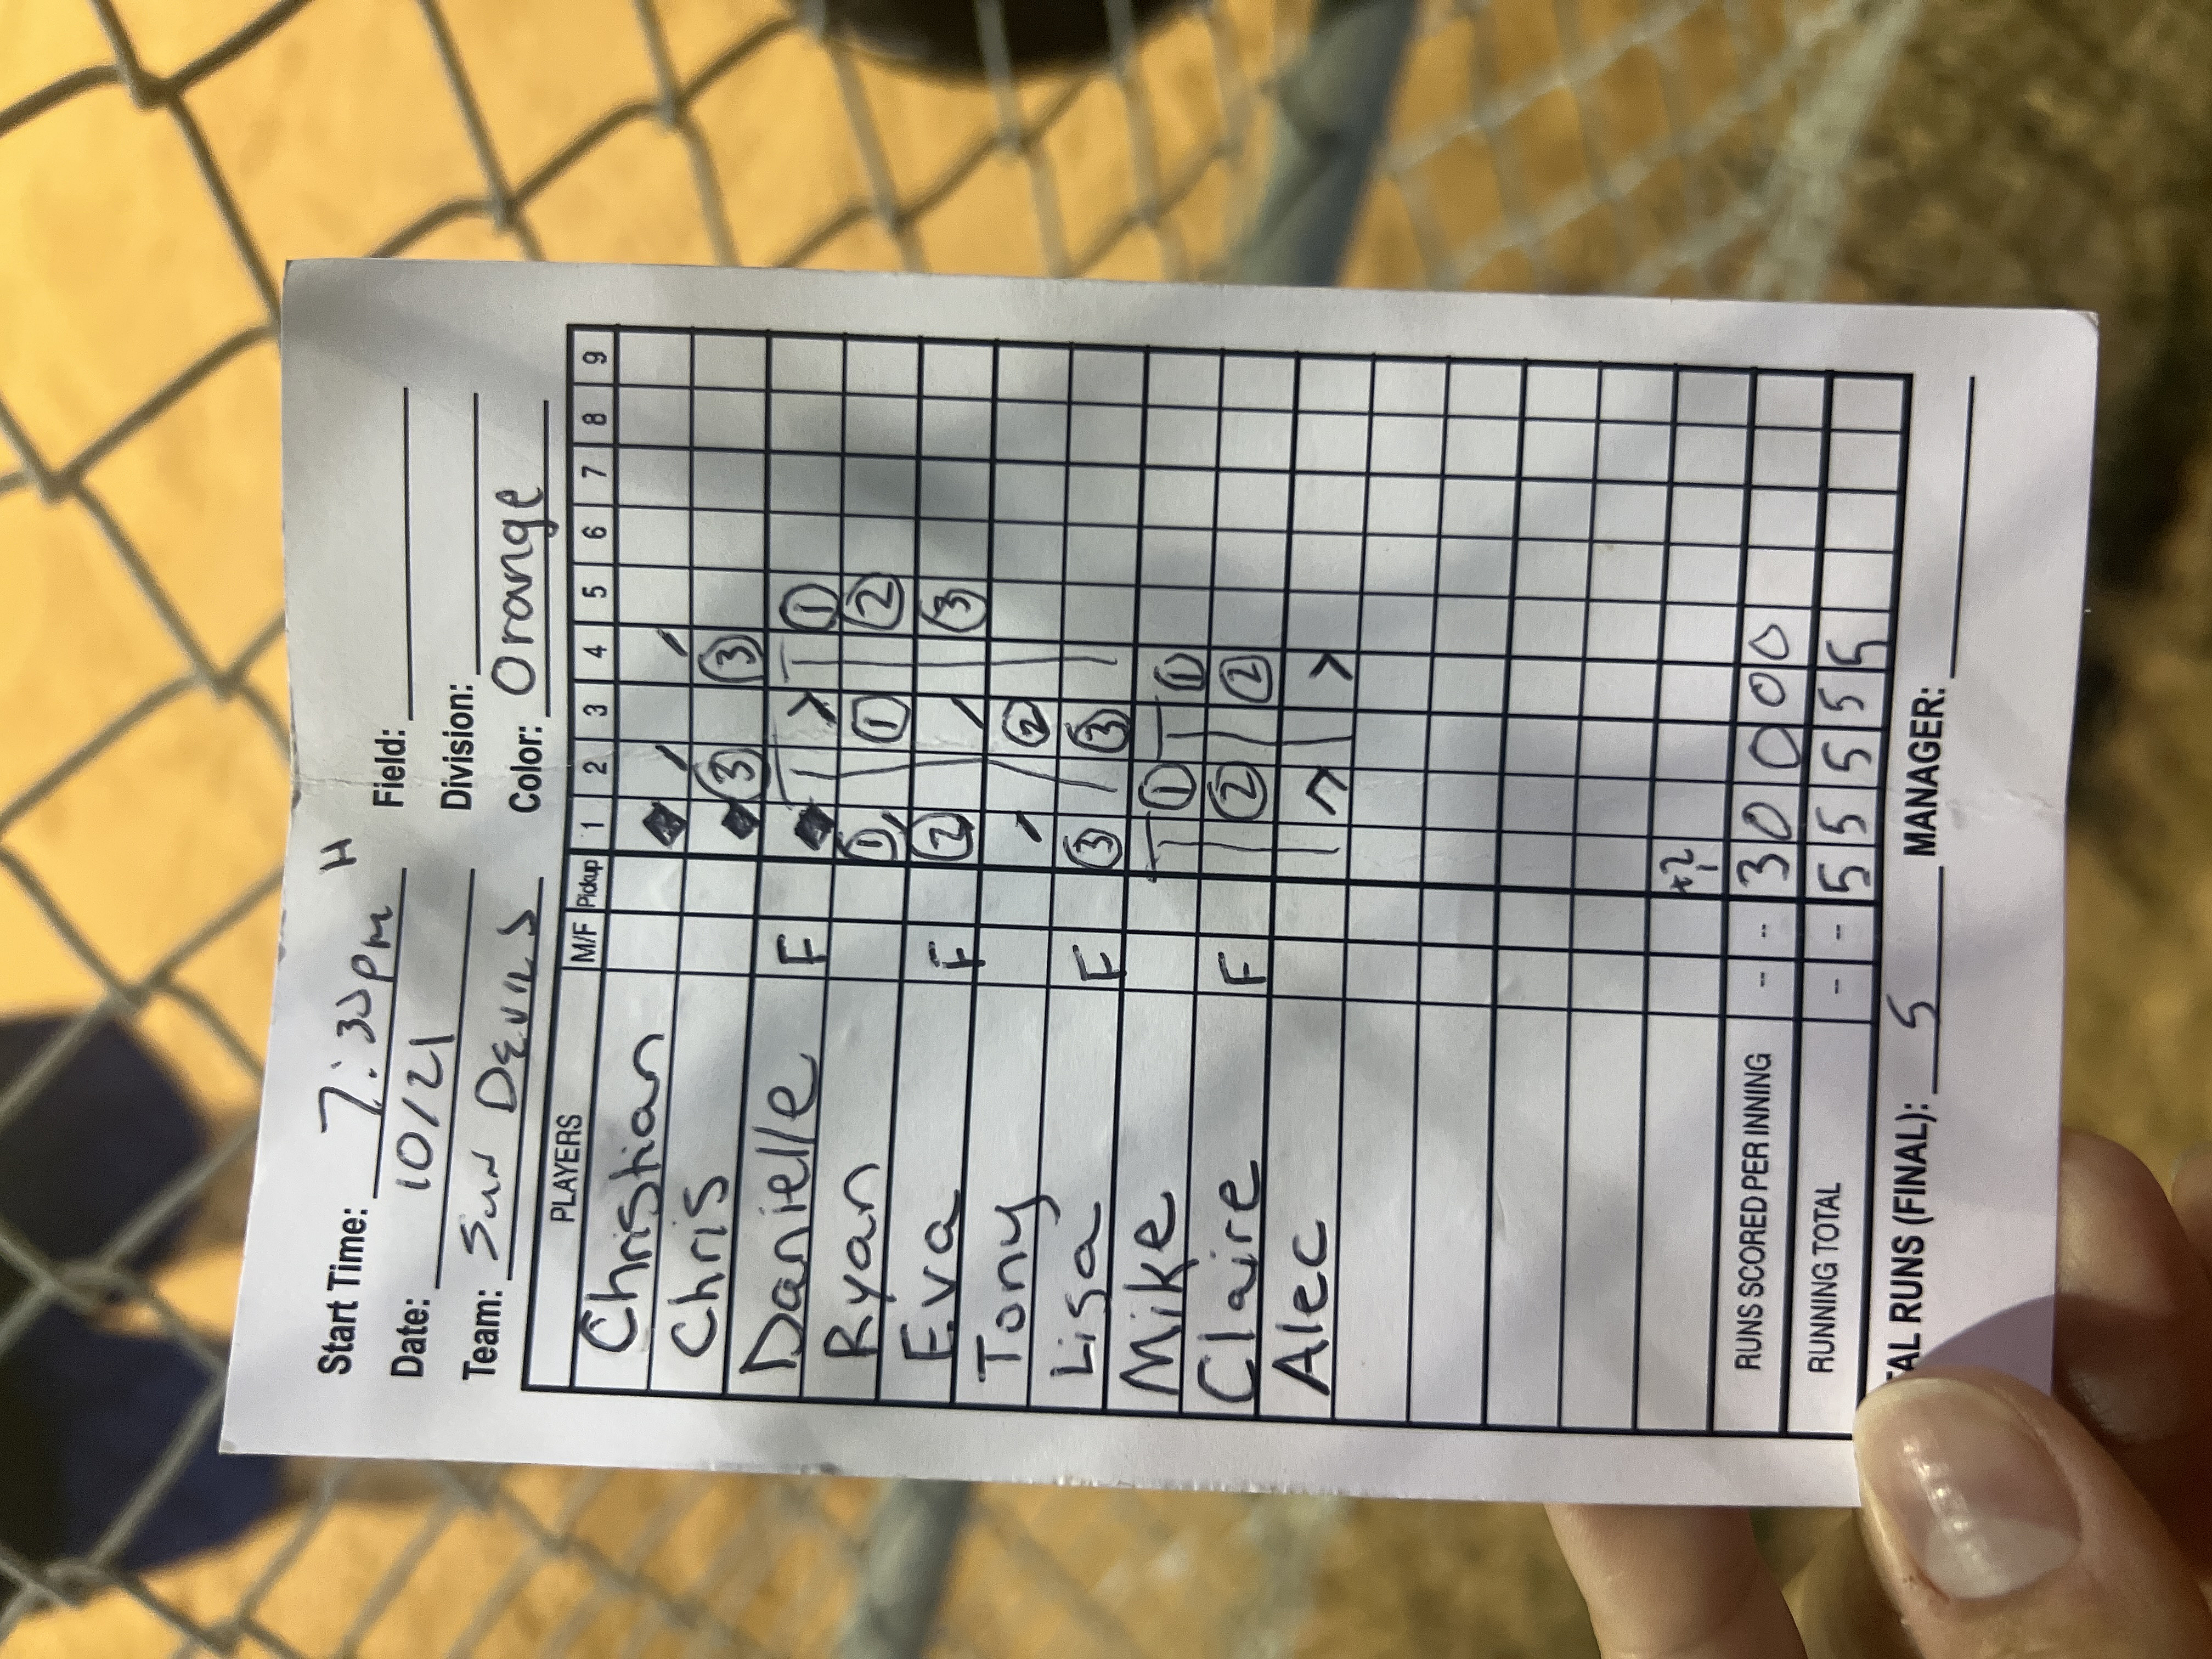 Start Time: 7:30pm H Field:
Date: 10/21 Division:
Team: Sun Devils Color: Orange
PLAYERS M/F Pickup 1 2 3 4 5 6 7 8 9
Christian
Chris 3 3
Danielle F 1
Ryan 1 1 2
Eva F 2 3
Tony 2
Lisa F 3 3
Mike 1 1
Claire F 2 2
Alec
+2
RUNS SCORED PER INNING -- -- 3 0 0 0 0
RUNNING TOTAL -- -- 5 5 5 5 5
AL RUNS (FINAL): 5 MANAGER: